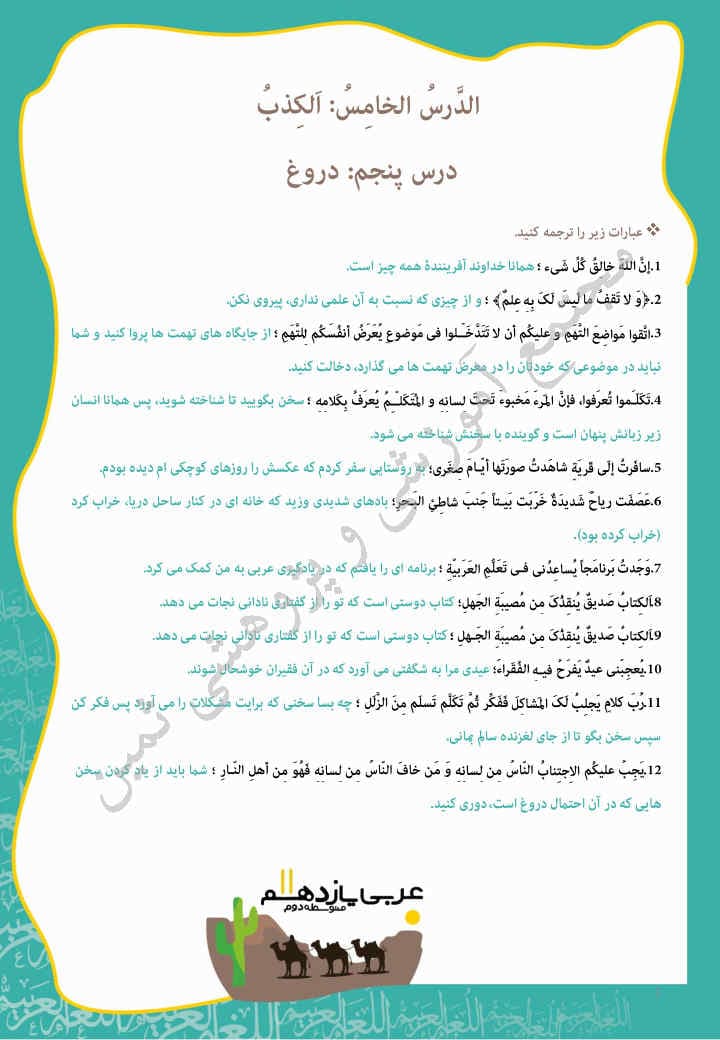 الدَّرسُ الخامِسُ: اَلکِذبُ
درس پنجم: دروغ
❖ عبارات زیر را ترجمه کنید.
1.إنَّ اللهَ خالِقُ کُلِّ شَیء ؛ همانا خداوند آفرینندهٔ همه چیز است.
2.﴿وَ لا تَقفُ ما لَیسَ لَکَ بِهِ عِلمٌ﴾ ؛ و از چیزی که نسبت به آن علمی نداری، پیروی نکن.
3.اتَّقوا مَواضِعَ التُّهَمِ و علیکُم أن لا تَتَدَخَّـلوا فی مَوضوعٍ یُعَرِّضُ أنفُسَکُم لِلتُّهَمِ ؛ از جایگاه های تهمت ها پروا کنید و شما
نباید در موضوعی که خودتان را در معرض تهمت ها می گذارد، دخالت کنید.
4.تَکَلَّـموا تُعرَفوا، فإنَّ المَرءَ مَخبوء تَحتَ لسانِهِ و المُتَکَلِّـمُ یُعرَفُ بِکَلامِهِ ؛ سخن بگویید تا شناخته شوید، پس همانا انسان
زیر زبانش پنهان است و گوینده با سخنش شناخته می شود.
5.سافَرتُ إلَی قَریَةٍ شاهَدتُ صورَتَها أیّـامَ صِغَری؛ به روستایی سفر کردم که عکسش را روزهای کوچکی ام دیده بودم.
6.عَصَفَت ریاحٌ شَدیدَةٌ خَرَّبَت بَیـتاً جَنبَ شاطِئِ البَـحرِ؛ بادهای شدیدی وزید که خانه ای در کنار ساحل دریا، خراب کرد
(خراب کرده بود).
7.وَجَدتُ بَرنامَجاً یُساعِدُنی فـی تَعَلُّمِ العَرَبیَّةِ ؛ برنامه ای را یافتم که در یادگیری عربی به من کمک می کرد.
8.اَلکِتابُ صَدیقٌ یُنقِذُکَ مِن مُصیبَةِ الجَهلِ؛ کتاب دوستی است که تو را از گفتاری نادانی نجات می دهد.
9.اَلکِتابُ صَدیقٌ یُنقِذُکَ مِن مُصیبَةِ الجَـهلِ ؛ کتاب دوستی است که تو را از گفتاری نادانی نجات می دهد.
10.یُعجِبُنی عیدٌ یَفرَحُ فیـهِ الفُقَراءَ؛ عیدی مرا به شگفتی می آورد که در آن فقیران خوشحال شوند.
11.رُبَّ کلامٍ یَجلِبُ لَکَ المَشاکِلَ فَفَکِّر ثُمَّ تَکَلَّم تَسلَم مِنَ الزَّلَلِ ؛ چه بسا سخنی که برایت مشکلات را می آورد پس فکر کن
سپس سخن بگو تا از جای لغزنده سالم بمانی.
12.یَجِبُ علیکُم الاِجتِنابُ النّاسُ مِن لِسانِهِ وَ مَن خافَ النّاسُ مِن لِسانِهِ فَهُوَ مِن أهلِ النّـارِ ؛ شما باید از یاد کردن سخن
هایی که در آن احتمال دروغ است، دوری کنید.
مجتمع آموزشی و پژوهشی ثمین
عربی یازدهم
متوسطه دوم